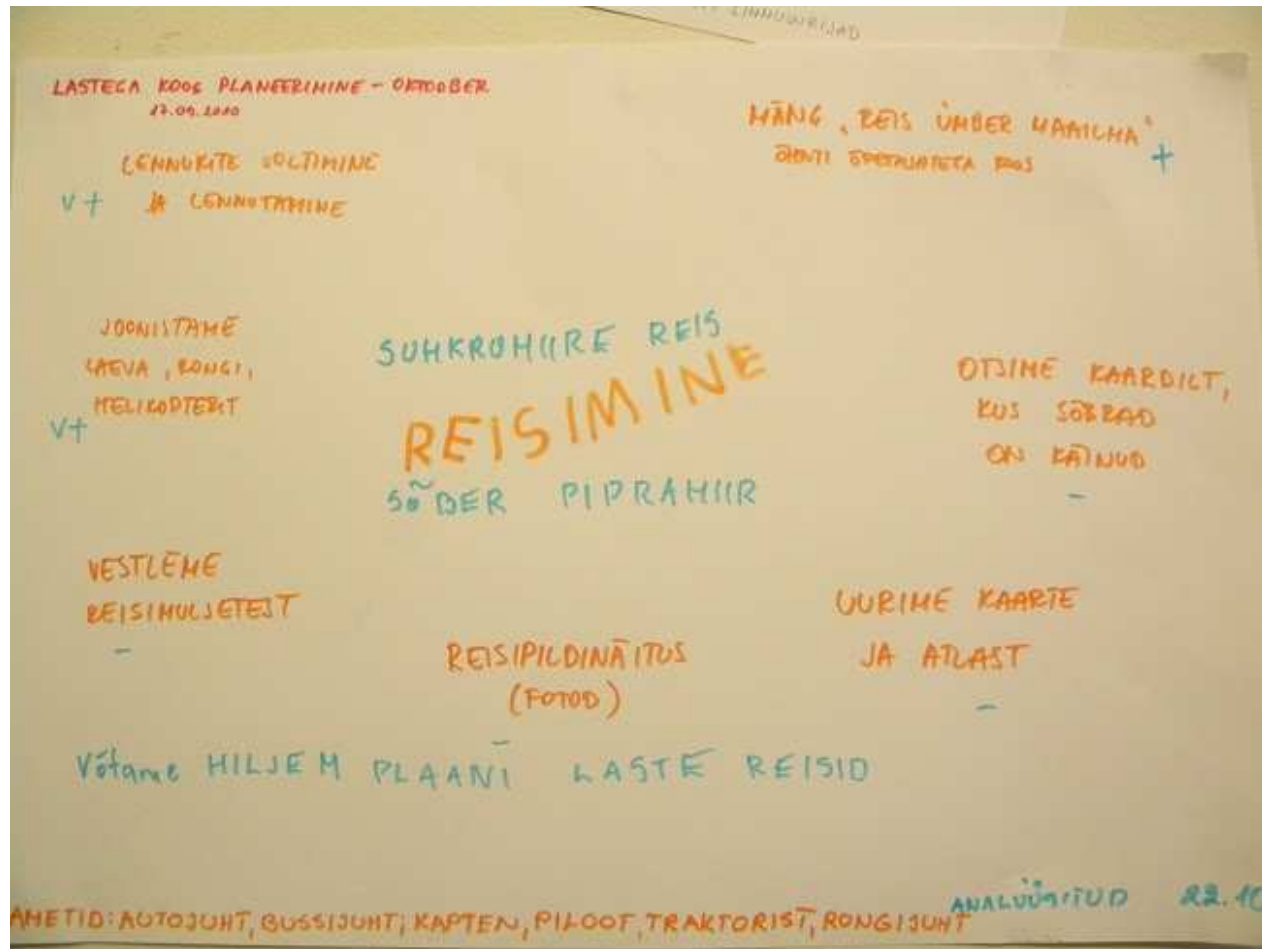 LINNUUURIJAD
LASTEGA KOOS PLANEERIMINE - OKTOOBER
17.09.2010
LENNUKITE VOLTIMINE
V + JA LENNUTAMINE
MÄNG „REIS ÜMBER MAAILMA“
ÕPETAJATEGA KOOS +
JOONISTAME
LAEVA, RONGI,
HELIKOPTERIT
V+
SUHKRUHIIRE REIS
REISIMINE
SÕBER PIPRAHIIR
OTSIME KAARDILT,
KUS SÕBRAD
ON KÄINUD
-
VESTLEME
REISIMULJETEST
-
REISIPILDINÄITUS
(FOTOD)
-
UURIME KAARTE
JA ATLAST
-
Võtame HILJEM PLAANI LASTE REISID
ANALÜÜSITUD 22.10
AMETID: AUTOJUHT, BUSSIJUHT, KAPTEN, PILOOT, TRAKTORIST, RONGIJUHT